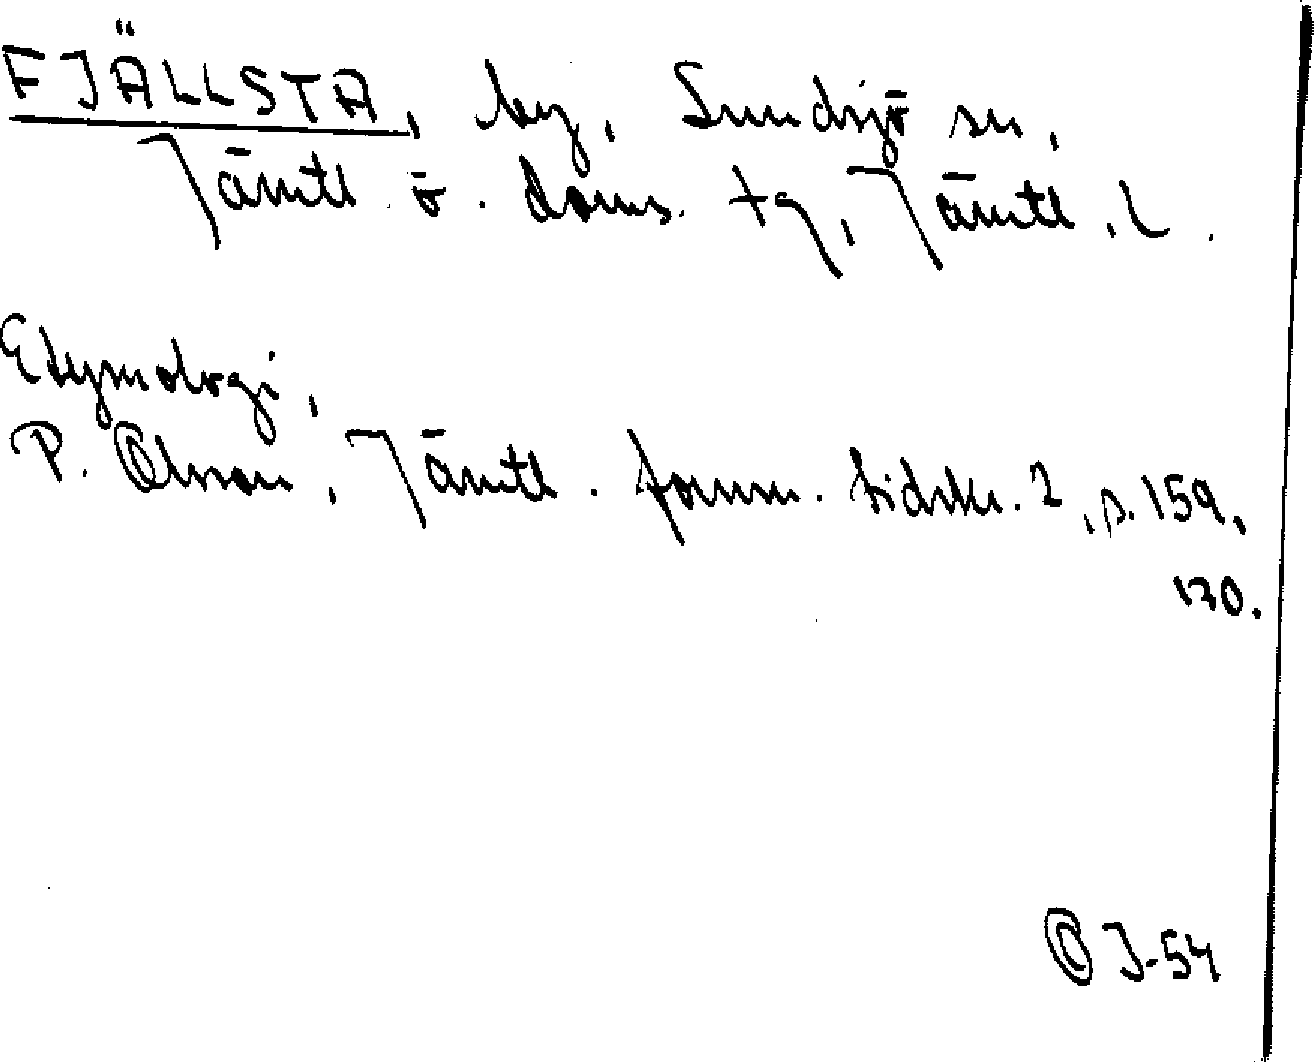 FJÄLLSTA, by, Sundsjö sn,
Jämtl. ö. doms. tg, Jämtl. l.
Etymologi,
P. Olsson, Jämtl. fornm. tidskr. 2, s. 159,
170.
OJ-54